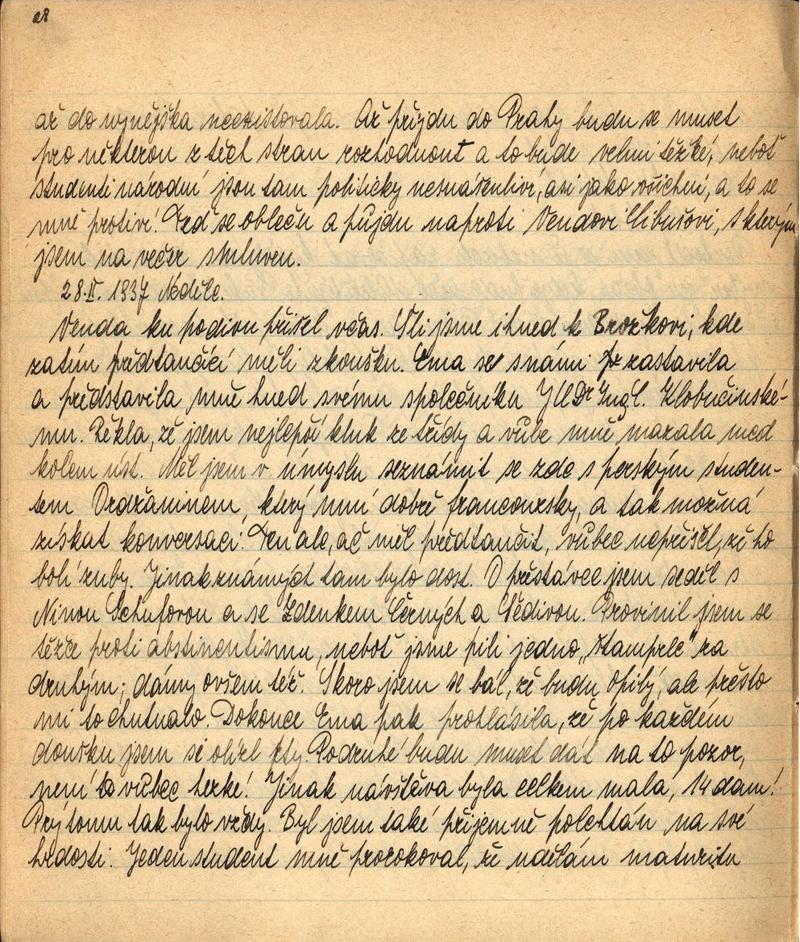 28
až do vynějška neexistovala. Až přijdu do Prahy budu se muset
pro některou z těch stran rozhodnout a to bude velmi těžké, neboť
studenti národní jsou tam politicky nesnášenliví, asi jako všichni, a to se
mně protiví! Teď se obleču a půjdu naproti Vendovi Libušovi, s kterým
jsem na večer smluven.
28.II. 1937 Neděle.
Venda ku podivu přišel včas. Šli jsme ihned k Brožkovi, kde
zatím předtančící měli zkoušku. Ema se s námi zastavila
a představila mně hned svému společníku JUDr Ingl. Klobučinské-
mu. Řekla, že jsem nejlepší kluk ze třídy a vůbec mně mazala med
kolem úst. Měl jsem v úmyslu seznámit se zde s perským studen-
tem, který umí dobře francouzsky, a tak možná
získat konversaci! Ten ale, ač měl předtančit, vůbec nepřišel, že ho
bolí zuby. Jinak známých tam bylo dost. O přestávce jsem seděl s
Ninou a se Zdenkem Černých a Šedivou. Provinil jsem se
těžce proti abstinentismu, neboť jsme pili jedno „štamprle" za
druhým; dámy ovšem též. Skoro jsem se bál, že budu opilý, ale přesto
mi to chutnalo. Dokonce Ema pak prohlásila, že po každém
doušku jsem se olízl rty. Podruhé budu muset dát na to pozor,
není to vůbec hezké! Jinak návštěva byla celkem malá, 14 dam!
Prý tomu tak bylo vždy. Byl jsem také příjemně polechtán na své
hrdosti: Jeden student mně prorokoval, že udělám maturitu